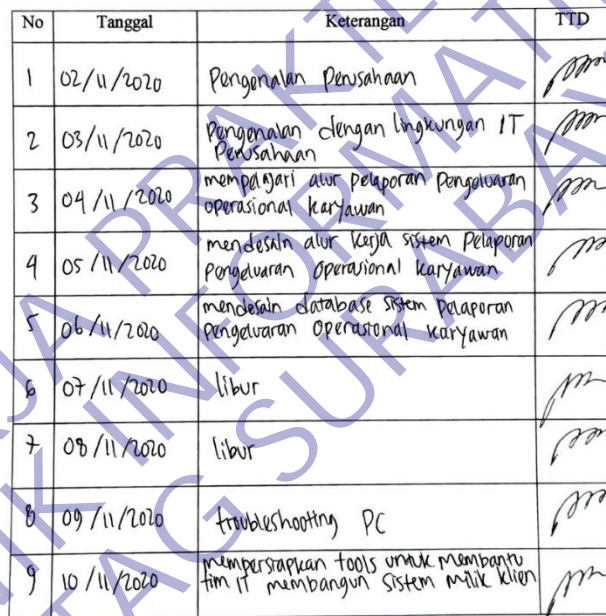 No Tanggal Keterangan TTD
1 02/11/2020 Pengenalan Perusahaan
2 03/11/2020 Pengenalan dengan lingkungan IT
Perusahaan
3 04/11/2020 mempelajari alur pelaporan Pengeluaran
operasional karyawan
4 05/11/2020 mendesain alur kerja sistem Pelaporan
Pengeluaran Operasional karyawan
5 06/11/2020 mendesain database sistem Pelaporan
Pengeluaran Operasional karyawan
6 07/11/2020 libur
7 08/11/2020 libur
8 09/11/2020 troubleshooting PC
9 10/11/2020 mempersiapkan tools untuk membantu
tim IT membangun sistem milik klien